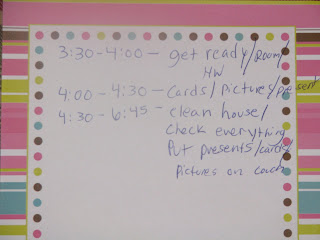 3:30-4:00 - get ready/Room/
HW
4:00 - 4:30 - Cards/Pictures/present
4:30 - 6:45 - clean house/
Check everything
Put presents/cards/
pictures on couch